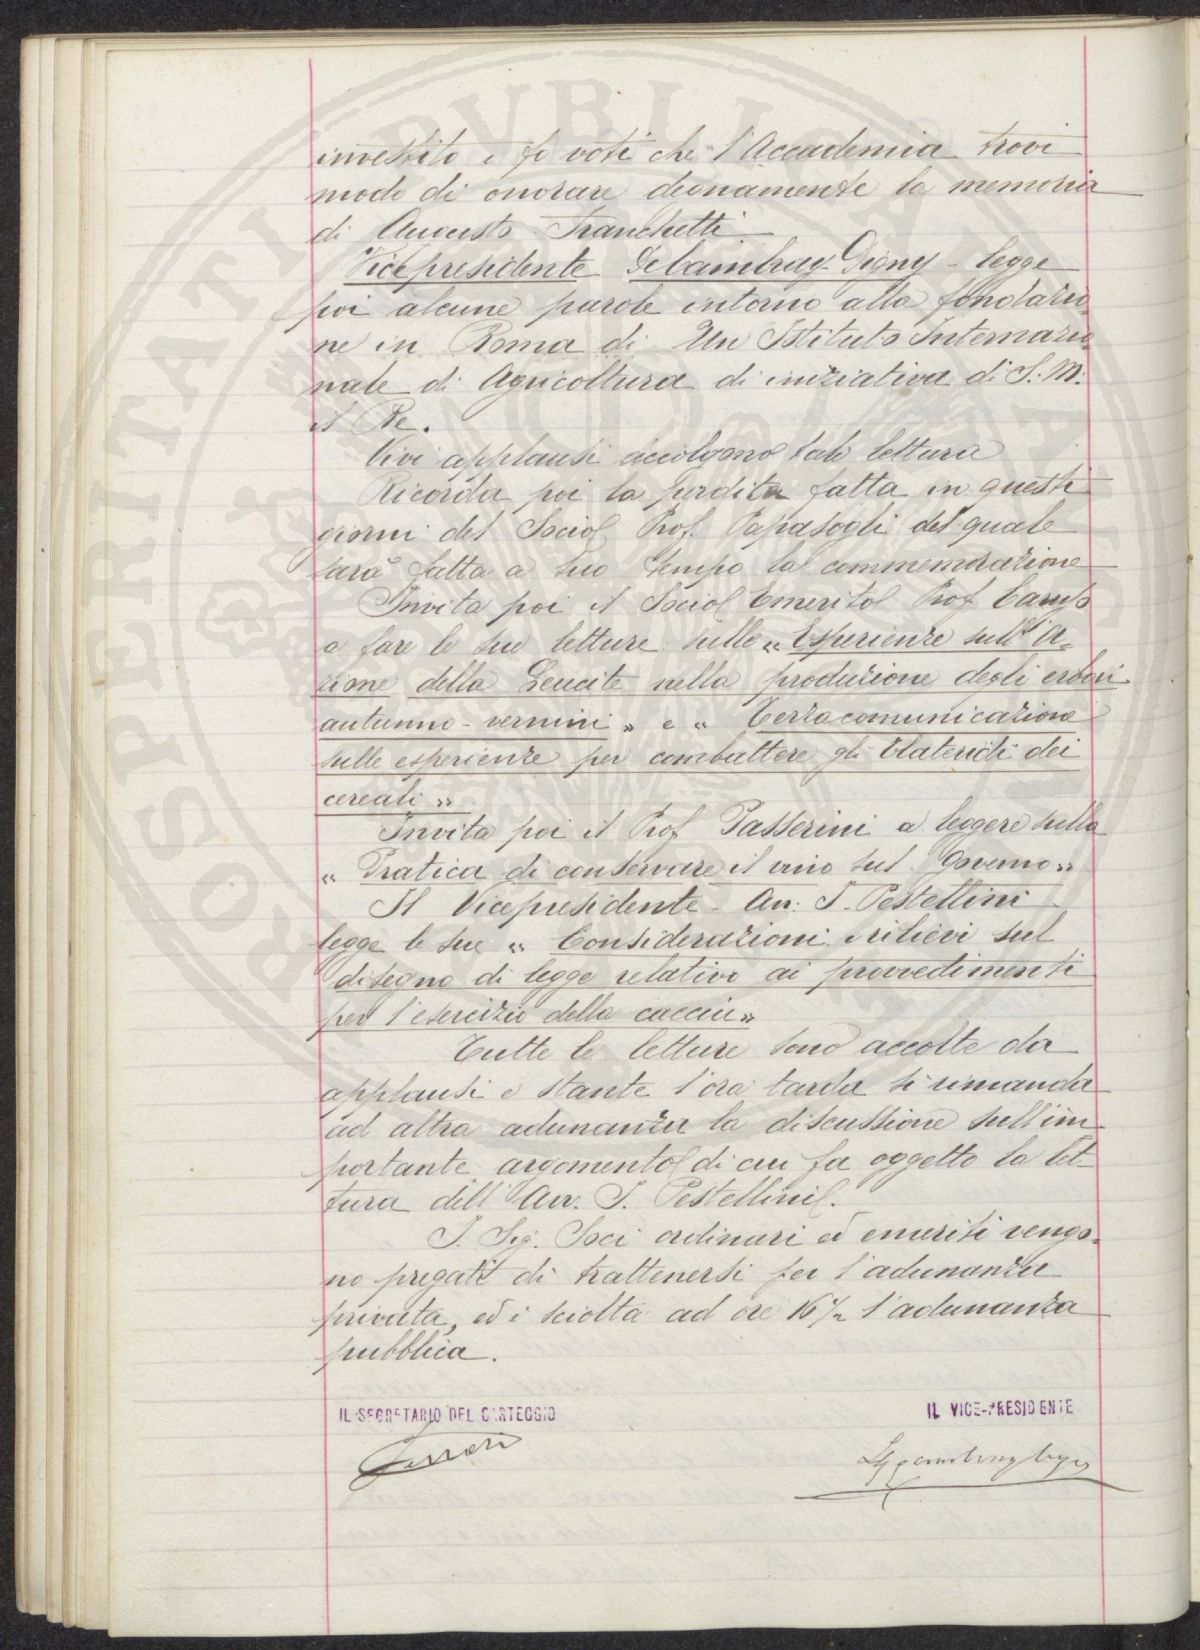 investito e fo voti che l'Accademia trovi
modo di onorare degnamente la memoria
di Augusto Franchetti
Vicepresidente De Cambray Digny - legge
poi alcune parole intorno alla fondazio
ne in Roma di Un Istituto Internazio
nale di Agricoltura di iniziativa di S. M.
il Re.
Vivi applausi accolgono tale lettura
Ricorda poi la perdita fatta in questi
giorni del Socio Prof. Papasogli del quale
sarà fatta a suo tempo la commemorazione
Invita poi il Socio Emerito Prof Caruso
a fare le sue letture sulle « Esperienze sull'A-
zione della Leucite nella produzione degli erbai
autunno-vernini » e « Terza comunicazione
sulle esperienze per combattere gli Elateridi dei
cereali »
Invita poi il Prof Passerini a leggere sulla
« Pratica di conservare il vino sul Governo »
Il Vicepresidente - Avv: I. Pestellini
legge le sue « Considerazioni e rilievi sul
disegno di legge relativo ai provvedimenti
per l'esercizio della caccia »
Tutte le letture sono accolte da
applausi e stante l'ora tarda si rimanda
ad altra adunanza la discussione sull'im
portante argomento di cui fa oggetto la let-
tura dell'Avv. I. Pestellini.
I. Sig. Soci ordinari ed emeriti vengo-
no pregati di trattenersi per l'adunanza
privata, ed è sciolta ad ore 16 ½ l'adunanza
pubblica.
IL SEGRETARIO DEL CARTEGGIO
IL VICE-PRESIDENTE